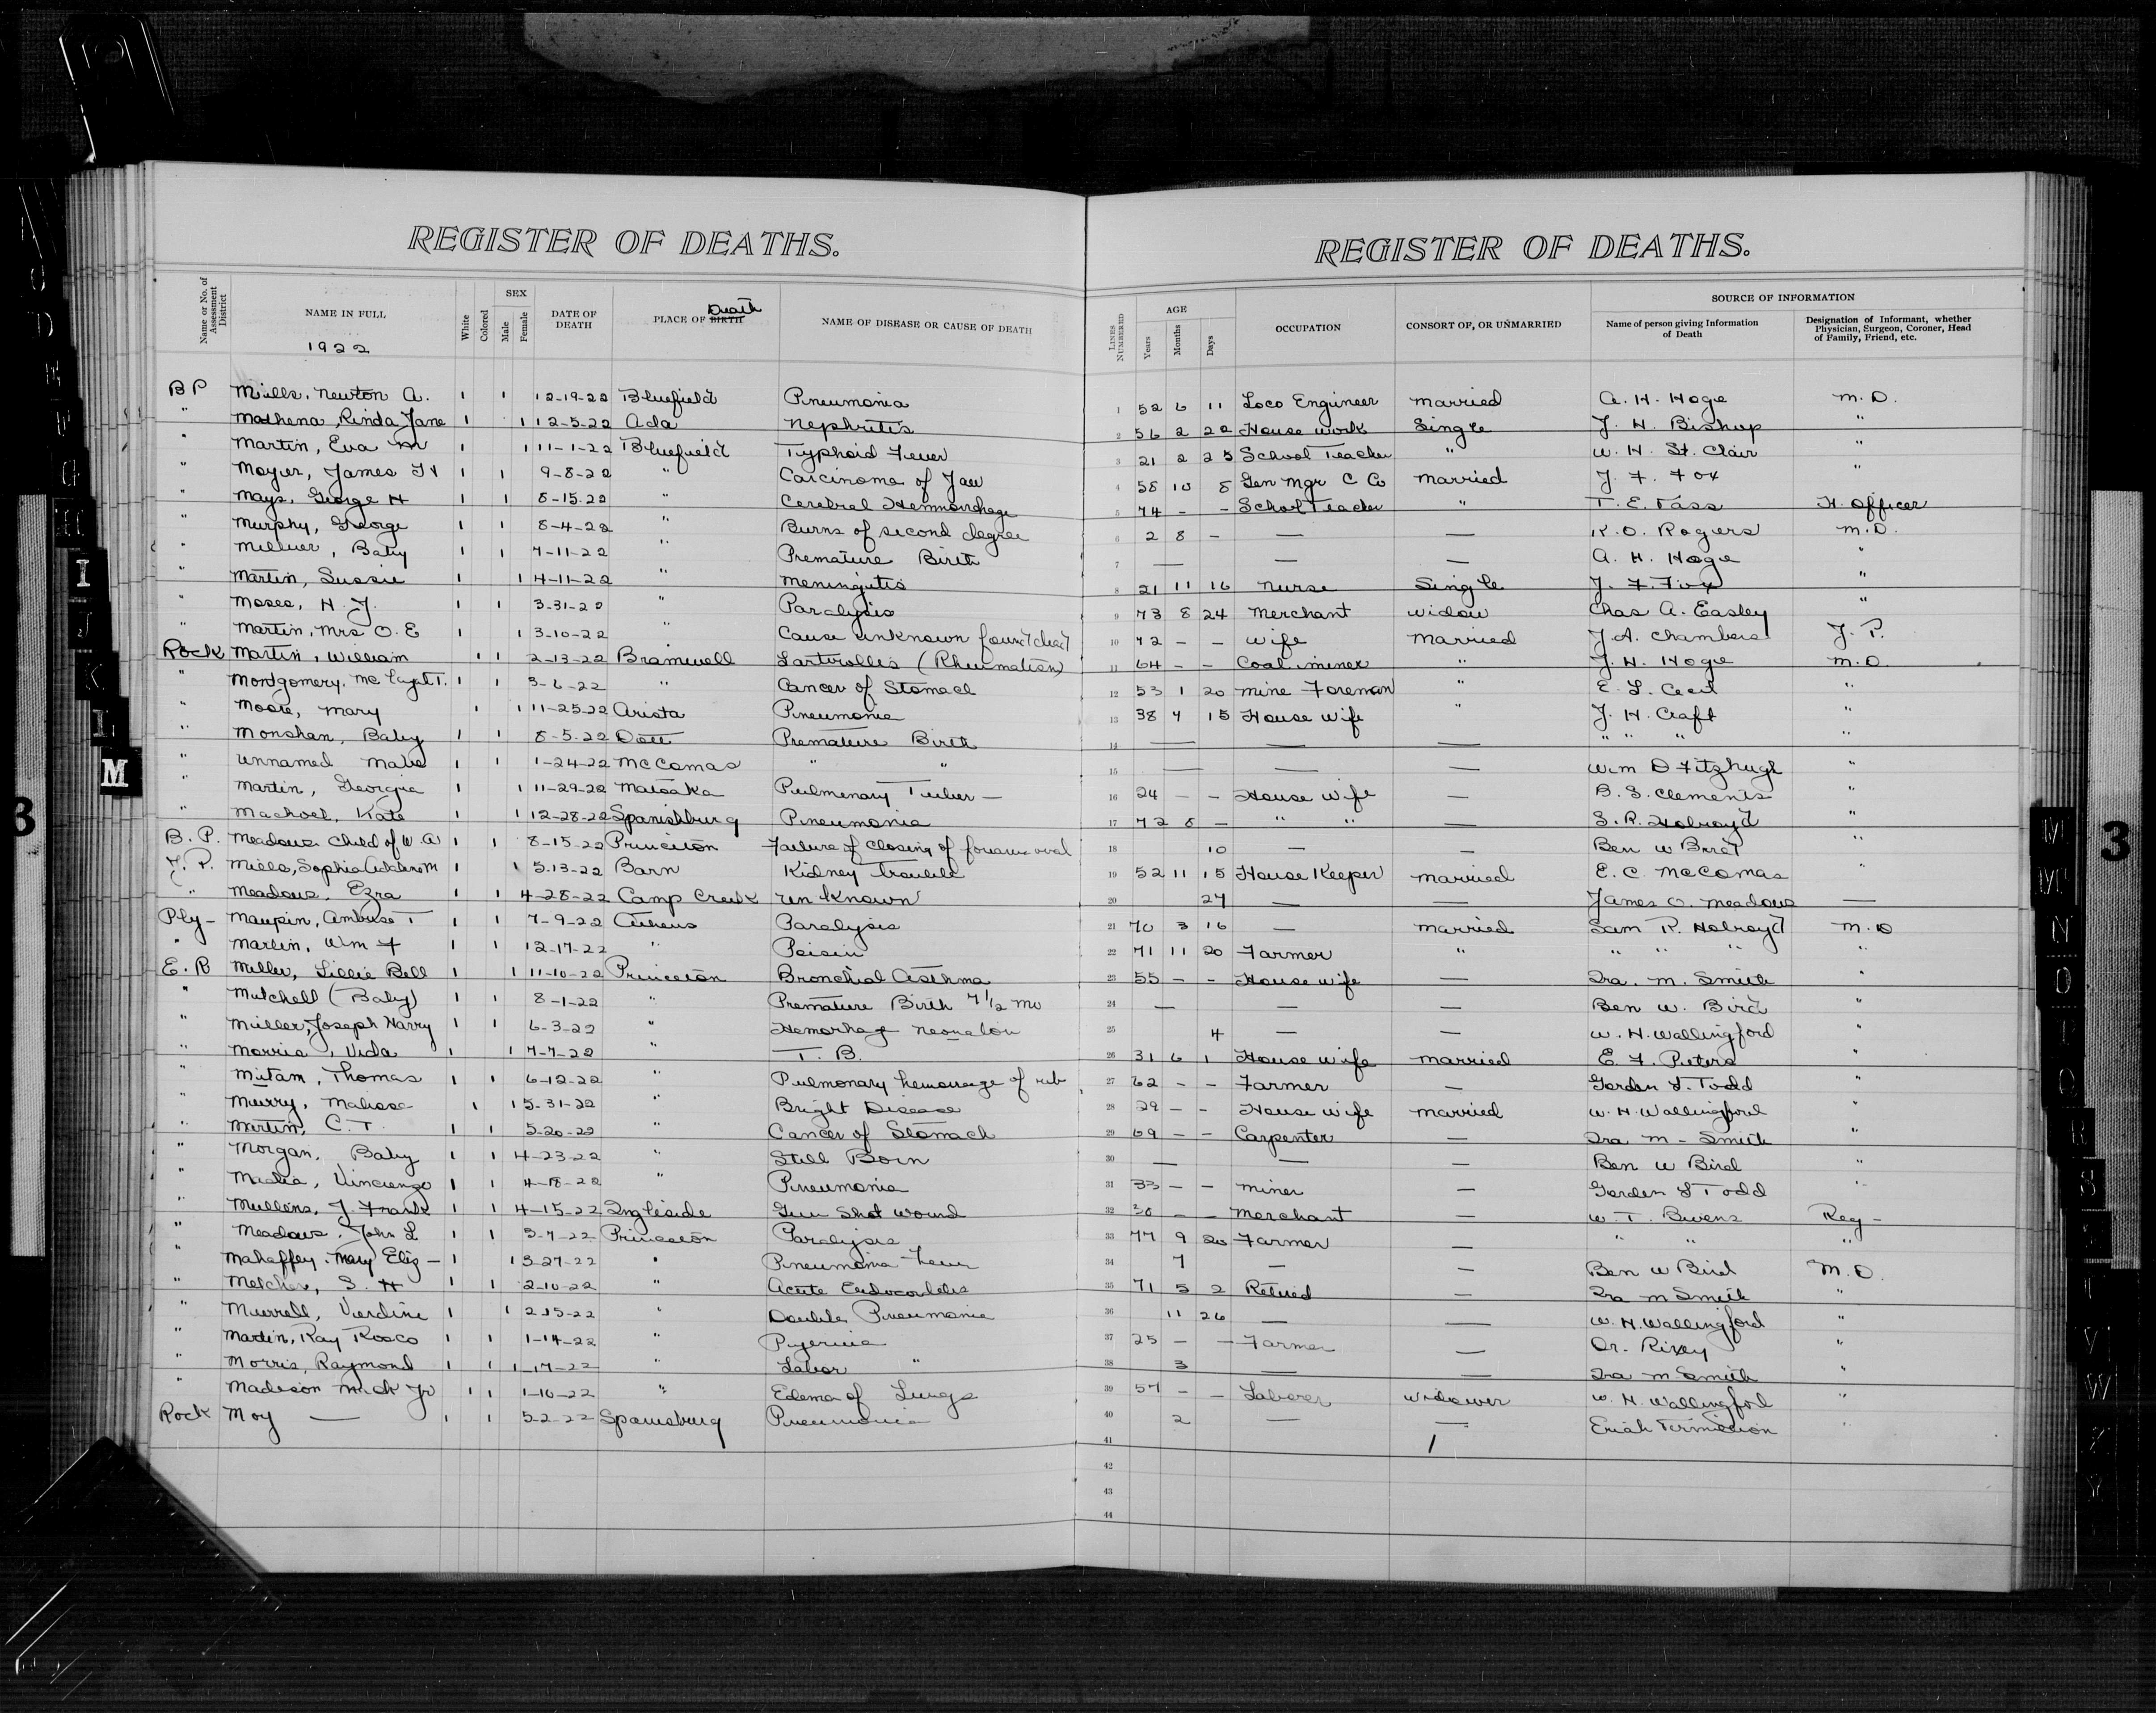 REGISTER OF DEATHS. REGISTER OF DEATHS.
Name or No. of Assessment District NAME IN FULL 1922 White Colored SEX Male Female DATE OF DEATH PLACE OF BIRTH Death NAME OF DISEASE OR CAUSE OF DEATH LINES NUMBERED AGE Years Months Days OCCUPATION CONSORT OF, OR UNMARRIED SOURCE OF INFORMATION Name of person giving Information of Death Designation of Informant, whether Physician, Surgeon, Coroner, Head of Family, Friend, etc.
BP Mills, Newton A. 1 1 12-19-22 Bluefield Pneumonia 1 52 6 11 Loco Engineer married A. H. Hoge M.D.
" Mathena, Rinda Jane 1 1 12-5-22 Ada Nephritis 2 56 2 22 House work Single J. H. Bishop "
" Martin, Eva M 1 1 11-1-22 Bluefield Typhoid Fever 3 21 2 25 School Teacher " W. H. St. Clair "
" Moyer, James H 1 1 9-8-22 " Carcinoma of Jaw 4 58 10 8 Gen Mgr C Co married J. F. Fox "
" Mays, George H 1 1 8-15-22 " Cerebral Hemmorrhage 5 74 - - School Teacher " T. E. Pass H. Officer
" Murphy, George 1 1 8-4-22 " Burns of second degree 6 2 8 - — — K. O. Rogers M.D.
" Millner, Baby 1 1 7-11-22 " Premature Birth 7 — — — A. H. Hoge "
" Martin, Sussie 1 1 4-11-22 " Meningitis 8 21 11 16 Nurse Single J. F. Fox "
" Moses, H. J. 1 1 3-31-22 " Paralysis 9 73 8 24 Merchant widow Chas A. Easley "
" Martin, Mrs O. E 1 1 3-10-22 " Cause unknown found dead 10 42 - - wife Married J. A. Chambers J. P.
Rock Martin, William 1 1 2-13-22 Bramwell (Rheumatism) 11 64 - - Coal miner " J. H. Hoge M.D.
" Montgomery, 1 1 3-6-22 " Cancer of Stomach 12 53 1 20 Mine Foreman " E. L. Cecil "
" Moore, Mary 1 1 11-25-22 Arista Pneumonia 13 38 4 15 House wife " J. H. Craft "
" Monshan, Baby 1 1 8-5-22 Dott Premature Birth 14 — — — " " " "
" unnamed Male 1 1 1-24-22 McComas " " 15 — — — Wm D Fitzhugh "
" Martin, Georgia 1 1 11-29-22 Matoaka Pulmonary Tuber— 16 24 - - House wife — B. S. Clements "
" Kate 1 1 12-28-22 Spanishburg Pneumonia 17 72 8 - " " — S. R. Holroyd "
B. P. Meadows Child of W. A 1 1 8-15-22 Princeton Failure of closing of 18 10 — — Ben W Bird "
J. P. Mills, Sophia M 1 1 5-13-22 Barn Kidney trouble 19 52 11 15 House Keeper married E. C. McComas "
" Meadows, Ezra 1 1 4-28-22 Camp Creek un known 20 27 — — James O. Meadows —
Ply- Maupin, Ambrose T 1 1 7-9-22 Athens Paralysis 21 70 3 16 — married Sam R. Holroyd M.D
" Martin, Wm F 1 1 12-17-22 " Poison 22 71 11 20 Farmer " " " " "
E. R Miller, Lillie Bell 1 1 11-10-22 Princeton Bronchial Asthma 23 55 - - House wife — Ira. M. Smith "
" Mitchell (Baby) 1 1 8-1-22 " Premature Birth 7 1/2 Mo 24 — — — Ben W. Bird "
" Miller, Joseph Harry 1 1 6-3-22 " 25 4 — — W. H. Wallingford "
" Morris, Vida 1 1 7-7-22 " T. B. 26 31 6 1 House wife married E. F. Peters "
" Thomas 1 1 6-12-22 " Pulmonary 27 62 - - Farmer — Gordon L. Todd "
" Murry, Malissa 1 1 5-31-22 " Bright Disease 28 29 - - House wife married W. H. Wallingford "
" Martin, C. T. 1 1 5-20-22 " Cancer of Stomach 29 69 - - Carpenter — Ira M- Smith "
" Morgan, Baby 1 1 4-23-22 " Still Born 30 — — — Ben W Bird "
" Vincenzo 1 1 4-18-22 " Pneumonia 31 33 - - miner — Gordon L Todd "
" Mullens, J. Frank 1 1 4-15-22 Ingleside Gun Shot Wound 32 38 - - Merchant — W. T. Bivens Reg-
" Meadows, John L 1 1 3-7-22 Princeton Paralysis 33 77 9 20 Farmer — " " "
" Mahaffey, Mary Eliz— 1 1 3-27-22 " Pneumonia 34 7 — — Ben W Bird M.D.
" Melcher, S. H 1 1 2-10-22 " Acute Endocarditis 35 71 5 2 Retired — Ira M Smith "
" Murrell, Verdine 1 1 2-15-22 " Double Pneumonia 36 11 26 — — W. H. Wallingford "
" Martin, Ray Rosco 1 1 1-14-22 " 37 25 - - Farmer — Dr. Rixey "
" Morris, Raymond 1 1 1-17-22 " Labor " 38 3 — — Ira M Smith "
" Madison Mack Jr 1 1 1-16-22 " Edema of Lungs 39 57 - - Laborer widower W. H. Wallingford "
Rock Moy — 1 1 5-2-22 Spanisburg Pneumonia 40 2 — — "
41
42
43
44
I
J
K
L
M
3
3